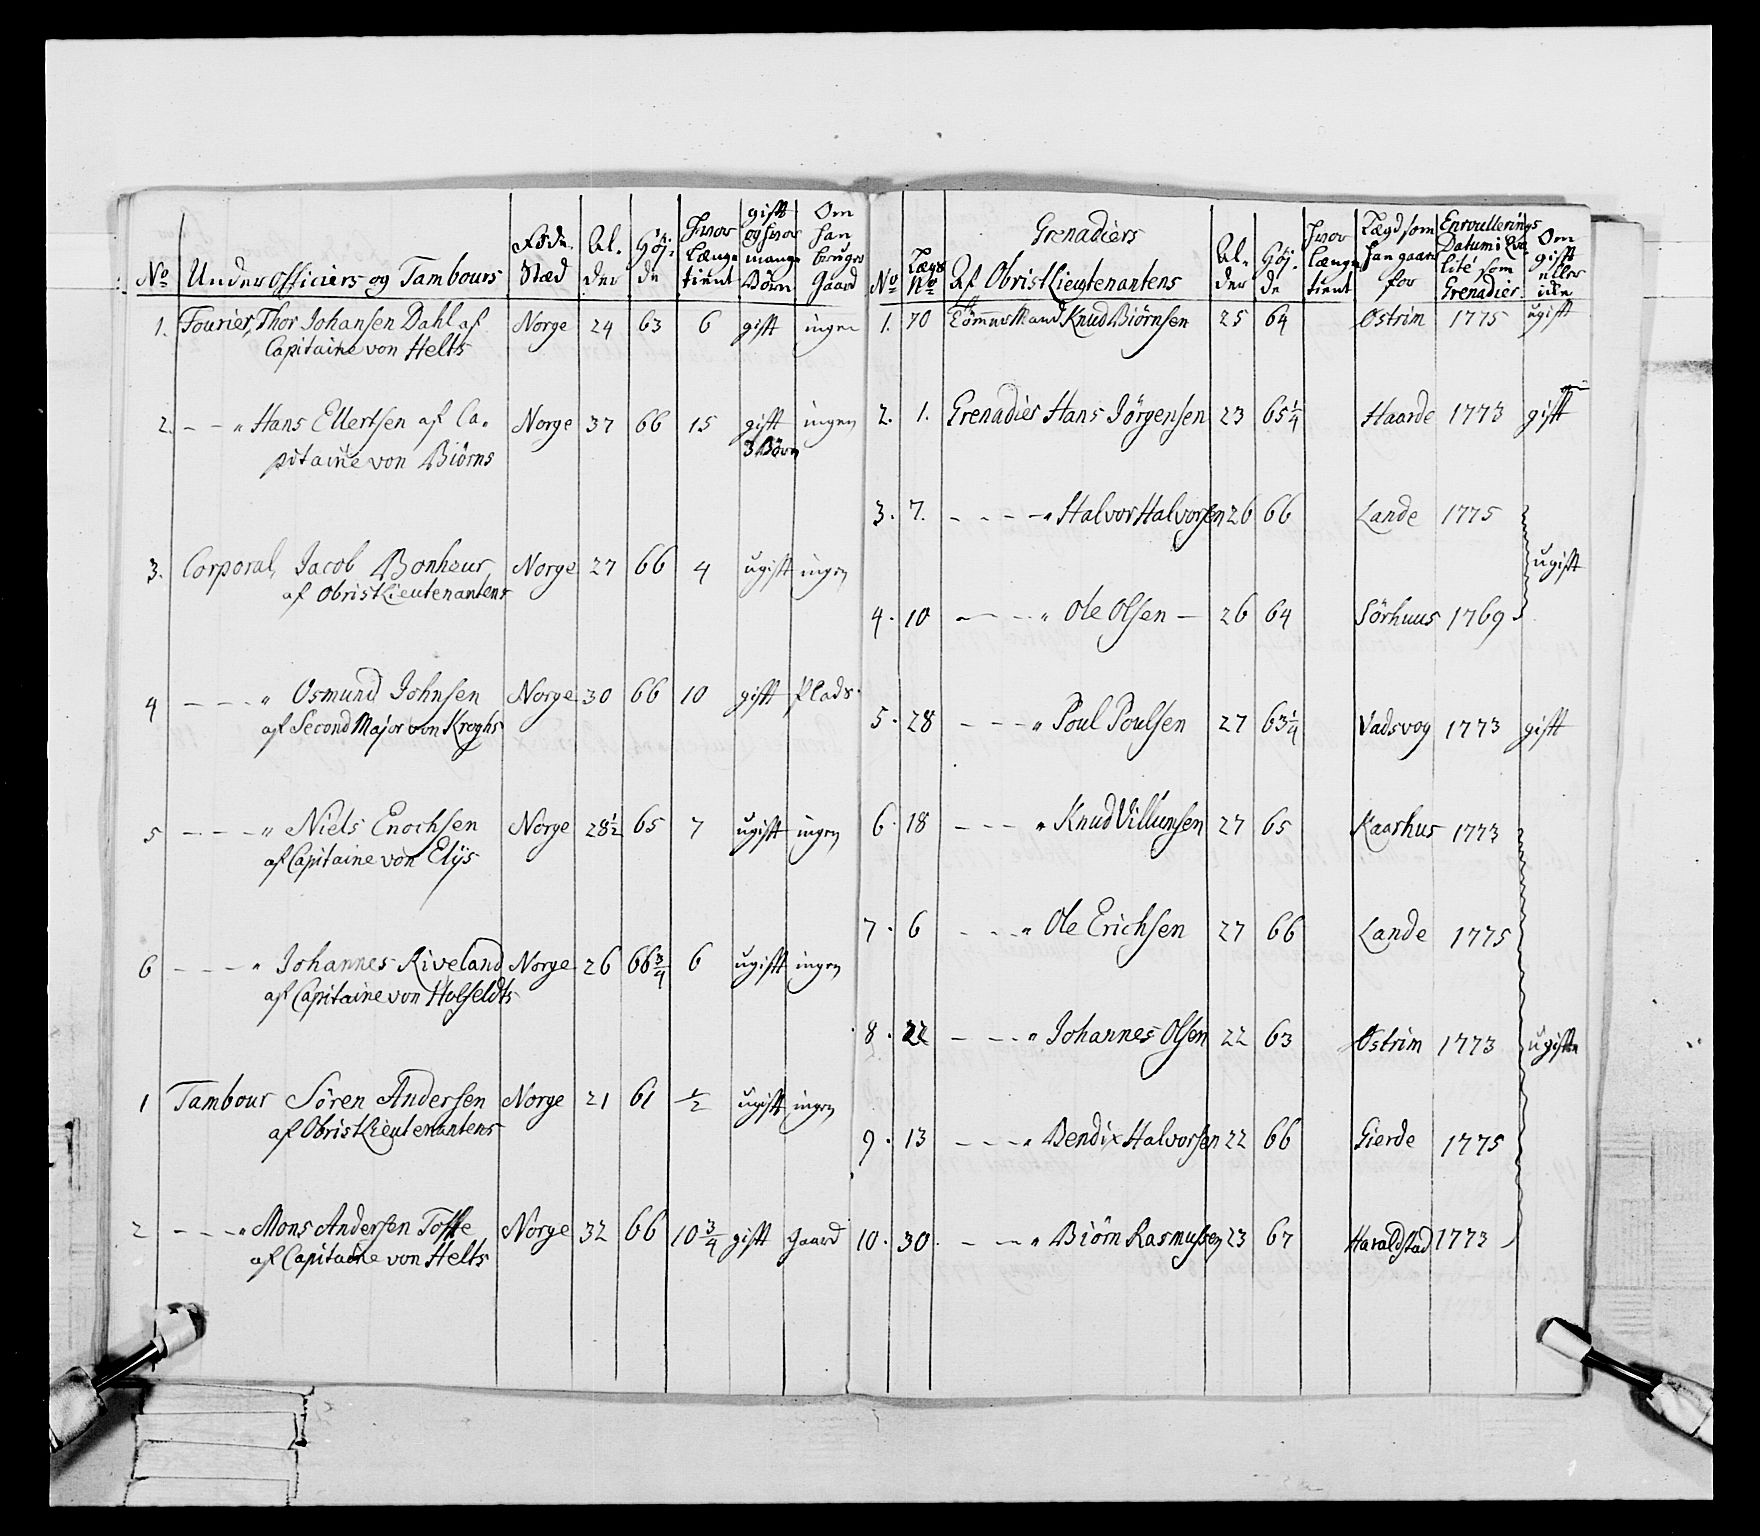 No Under officiers og Tambours Føde Stæd Al-der Høj-de Hvor Længe tient gift og hvor mange Börn Om han bruger Gaard
1. Fourier, Thor Johansen Dahl af Norge 24 63 6 gift ingen
Capitaine von Helts
2. - - " Hans Ellertsen af Ca- Norge 37 66 15 gift ingen
pitaine von Biörns 3 Börn
3. Corporal, Jacob Bonheur Norge 27 66 4 ugift ingen
af Obristlieutenantens
4 - - - " Osmund Johnsen Norge 30 66 10 gift Plads.
af Second Major von Kroghs
5 - - - " Niels Enochsen Norge 28½ 65 7 ugift ingen
af Capitaine von Elÿs
6 - - - " Johannes Riveland Norge 26 66¾ 6 ugift ingen
af Capitaine von Holfeldts
1 Tambour Sören Andersen Norge 21 61 ½ ugift ingen
af Obristlieutenantens
2 - - - " Mons Andersen Norge 32 66 10¾ gift Gaard
af Capitaine von Helts
Grenadiers
No Lægs No Af Obristlieutenantens Al-der Høj-de Hvor Længe tient Lægd som han gaar for Enroullerings Datum i Qvalité som Grenadier Om gift eller icke
1. 70 Tömmermand Knud Biörnsen 25 64 Ostrim 1775 ugift
2. 1. Grenadier Hans Jörgensen 23 65¼ Haarde 1773 gift
3. 7. - - - - " Halvor Halvorsen 26 66 Lande 1775
ugift
4. 10 - - - " Ole Olsen - 26 64 Sörhuus 1769
5. 28 - - - " Poul Poulsen 27 63¼ Vadsvog 1773 gift
6. 18 - - - " Knud Villumsen 27 65 Kaarhus 1773
7. 6 - - - " Ole Erichsen 27 66 Lande 1775
8. 22 - - - " Johannes Olsen 22 63 Ostrim 1773 ugifte
9. 13 - - - " Bendix Halvorsen 22 66 Gierde 1775
10. 30. - - - " Biörn Rasmussen 23 67 Haraldstad 1773